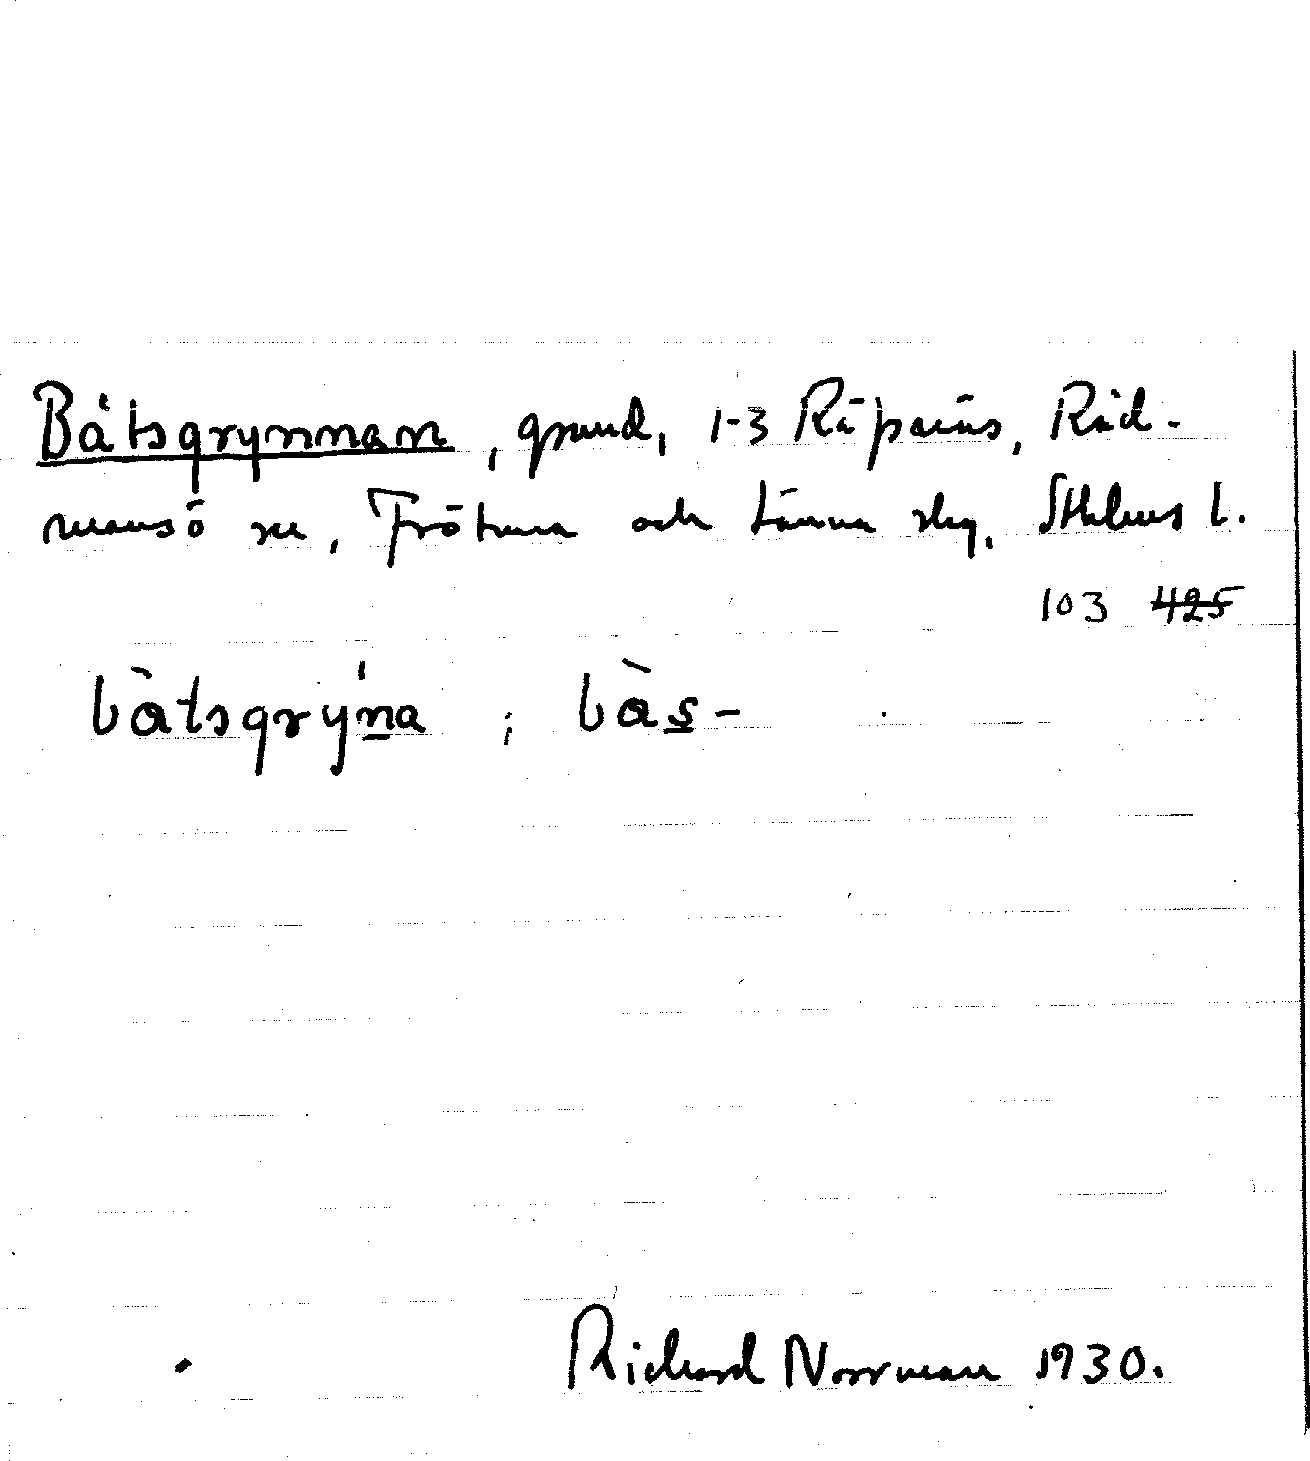 Båtsgrynnan, grund, 1-3 Räpsnäs, Råd-
mansö sn, Frötuna och Länna skg, Sthlms l.
103 ~~425~~
bàtsgrýna ; bàs-
Richard Norrman 1930.